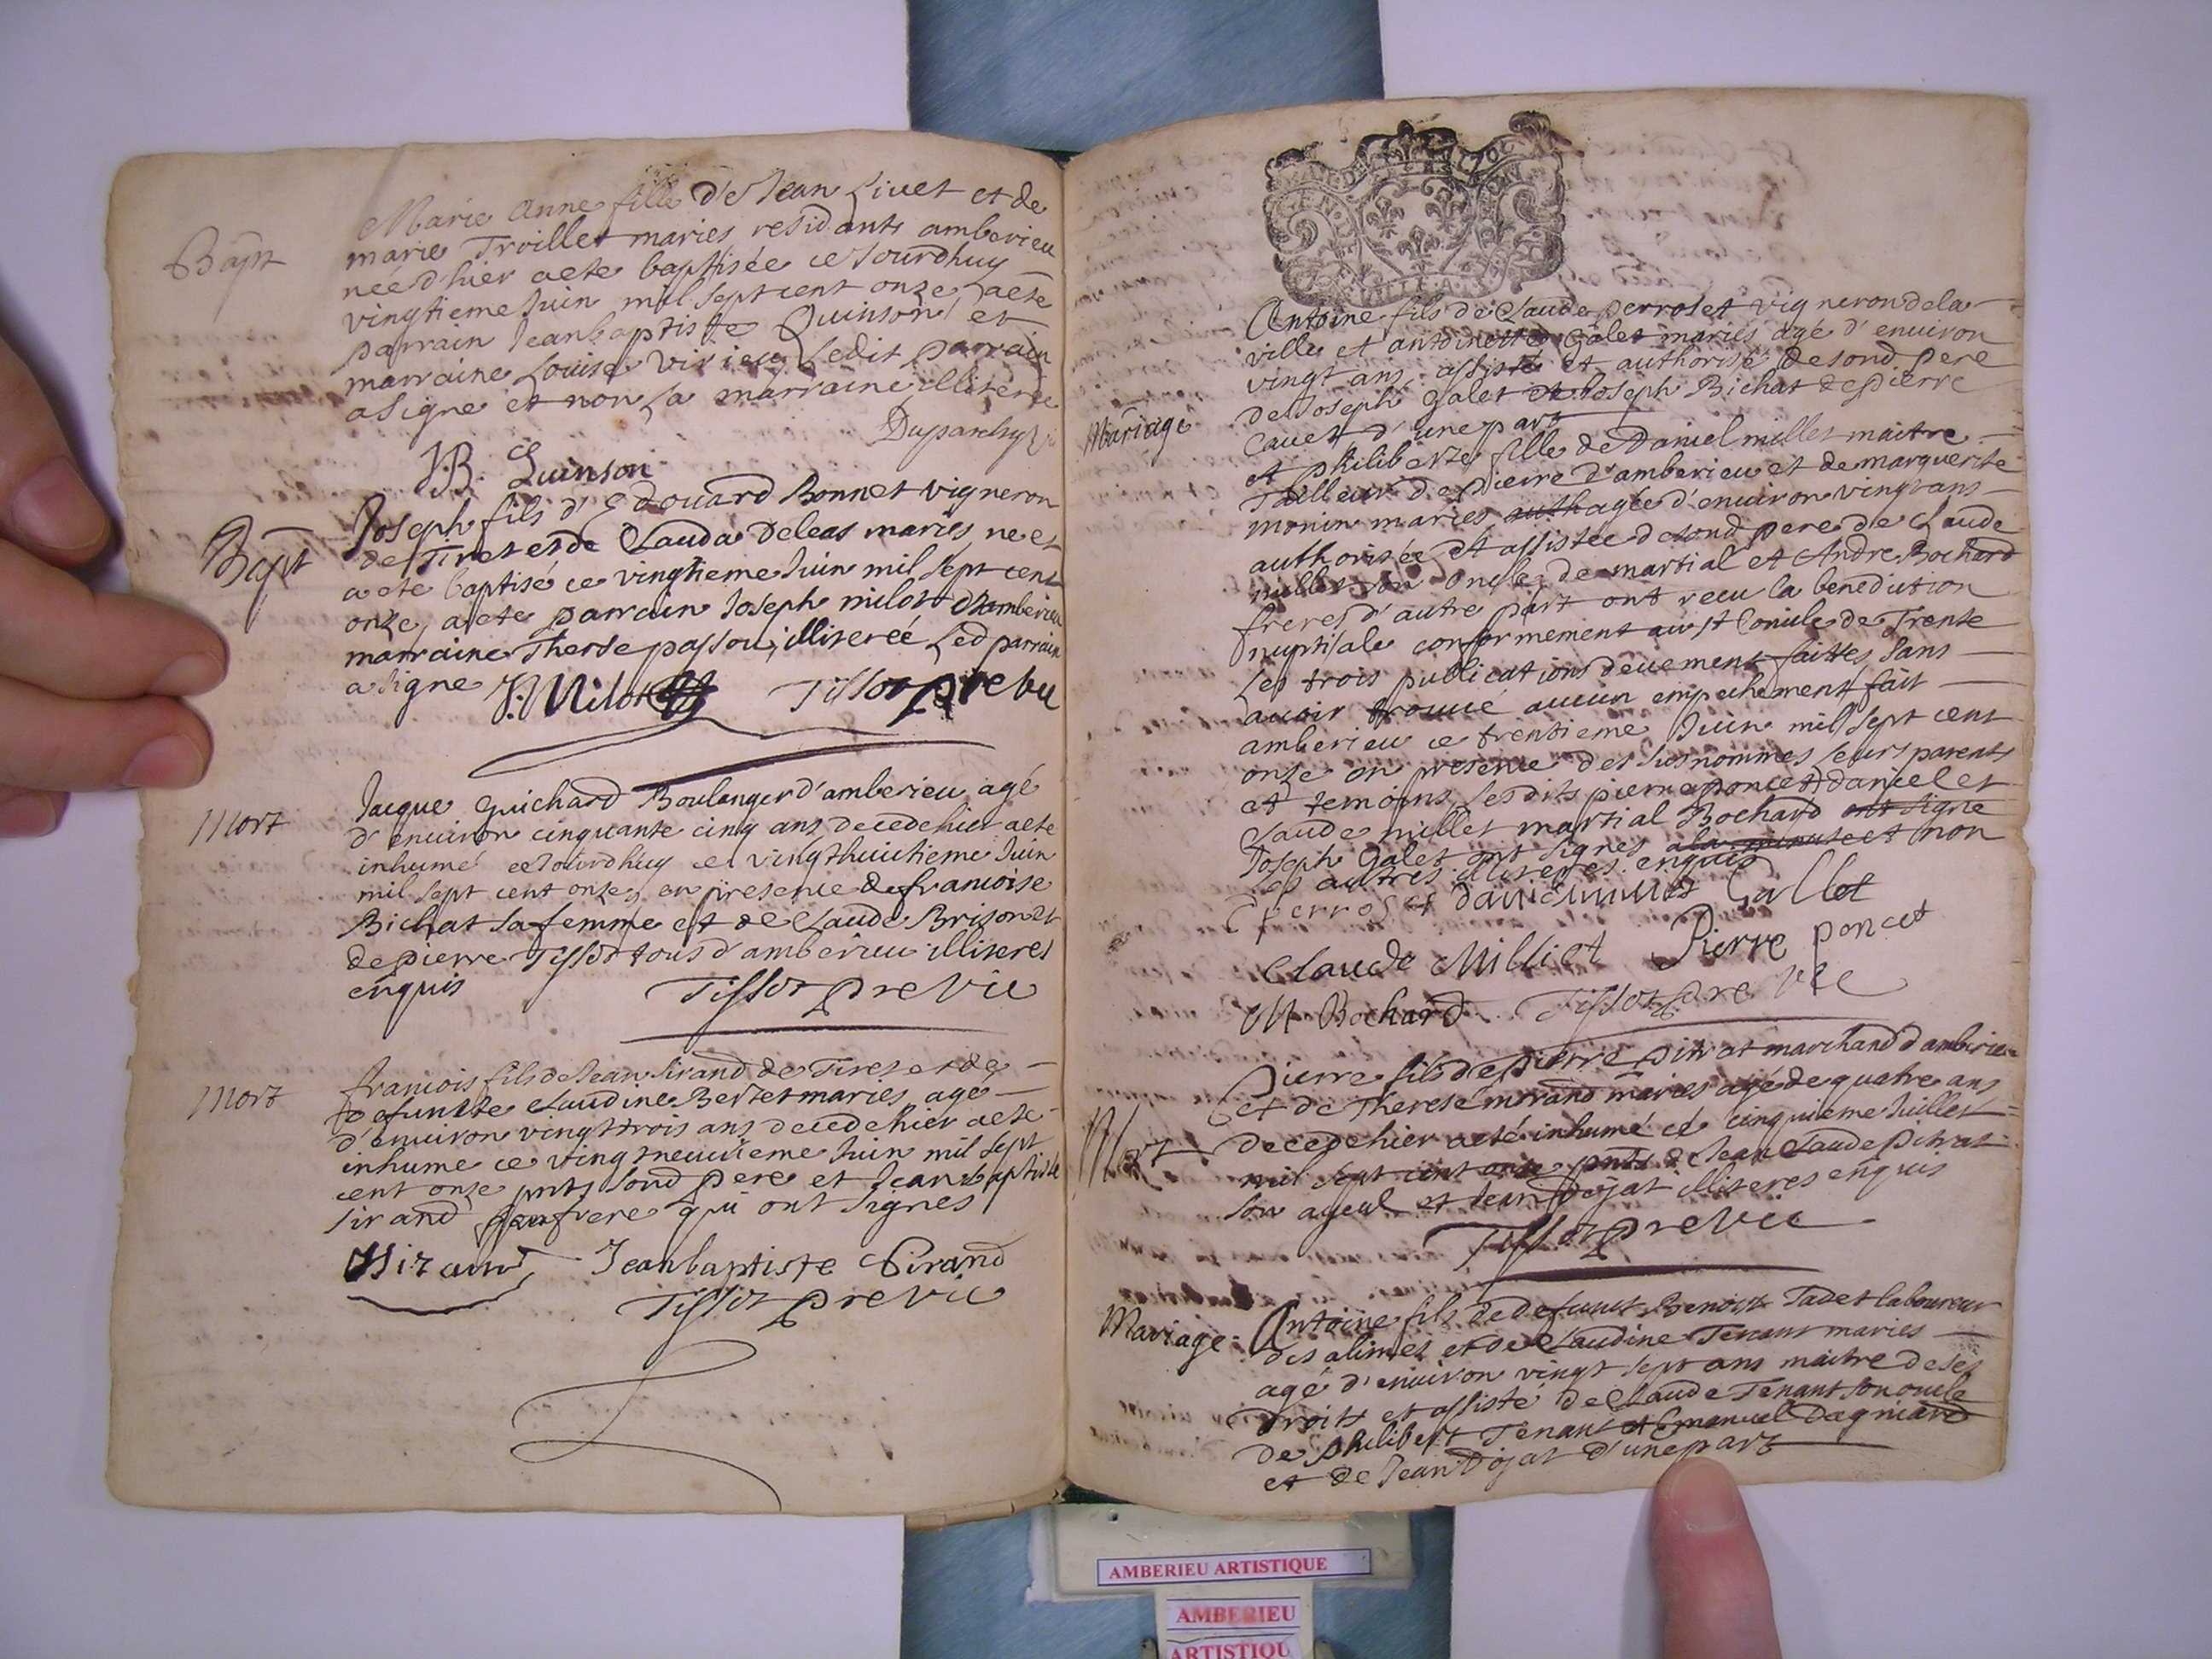 Bapt
Marie Anne fille de Jean Livet et de
marie Troillet maries residants amberieu
née d'hier aete baptisée ce Jourdhuy
vingtieme Juin mil sept cent onze aete
parrain Jeanbaptiste Quinson et
marraine Louise Virieu Ledit parrain
asigne et non La marraine illiterée
J.B. Quinson
Bapt
Joseph fils d'Edouard Bonnet vigneron
de Tiret et de Clauda Deleas maries ne et
a ete baptisé ce vingtieme Juin mil sept cent
onze, aete parrain Joseph milot d'amberieu
marraine Therese passou, illiterée Led parrain
a signe J. Milot Tissot prevu
mort
Jacque Guichard Boulanger d'amberieu agé
d'enuiron cinquante cinq ans decede hier aete
inhumé ce Jourdhuy ce vingt huictieme Juin
mil sept cent onze, en presence de francoise
Bichat sa femme et de Claude Brison et
de pierre Tissot tous d'amberieu illiteres
enquis Tissot prevu
mort
francois fils de Jean Sirand de Tiret et de
defuncte Claudine Bertet maries agé
d'enuiron vingt trois ans decede hier aete
inhume ce vingt neuuieme Juin mil sept
cent onze pnts sond pere et Jeanbaptiste
Sirand frere qui ont signes
Sirand Jeanbaptiste Sirand
Tissot prevu
Antoine fils de Claude perroset vigneron de la
ville et antoinette Galet maries agé d'enuiron
vingt ans assisté et authorisé de sond pere
de Joseph Galet et Joseph Bichat de pierre
Mariage
Cauet d'une part
et philiberte fille de Daniel millet maitre
Tailleur de pierre d'amberieu et de marguerite
monin maries auth agée d'enuiron vingt ans
authorisée et assistée de sond pere de Claude
millet son oncle de martial et Andre Bochard
freres d'autre part ont receu la benediction
nuptiale conformement au st Concile de Trente
Les trois publications deuement faittes Sans
auoir trouué aucun empechement fait
amberieu ce trentieme Juin mil sept cent
onze en presence des susnommes leurs parents
et temoins Lesdits pierre poncet daniel et
Claude millet martial Bochard ont signe
Joseph Galet ont signes a la minute et non
les autres illiteres enquis
C perroset daniel millet Gallet
Claude Milliet Pierre poncet
M Bochard Tissot prevu
Pierre fils de pierre pitrat marchand d'amberieu
et de Therese morand maries agé de quatre ans
Mort
decede hier aeté inhumé ce cinquieme Juillet
mil sept cent onze pnts Jean Claude pitrat
son ayeul et Jean Dojat illiteres enquis
Tissot prevu
Mariage
Antoine fils de defunct Benoist Tadet laboureur
des alimes et de Claudine Tenant maries
agé d'enuiron vingt sept ans maitre de ses
droits et assisté de Claude Tenant son oncle
de philibert Tenant et Emanuel Dagniard
et de Jean Dojat d'une part
AMBERIEU ARTISTIQUE
AMBERIEU
ARTISTIQU